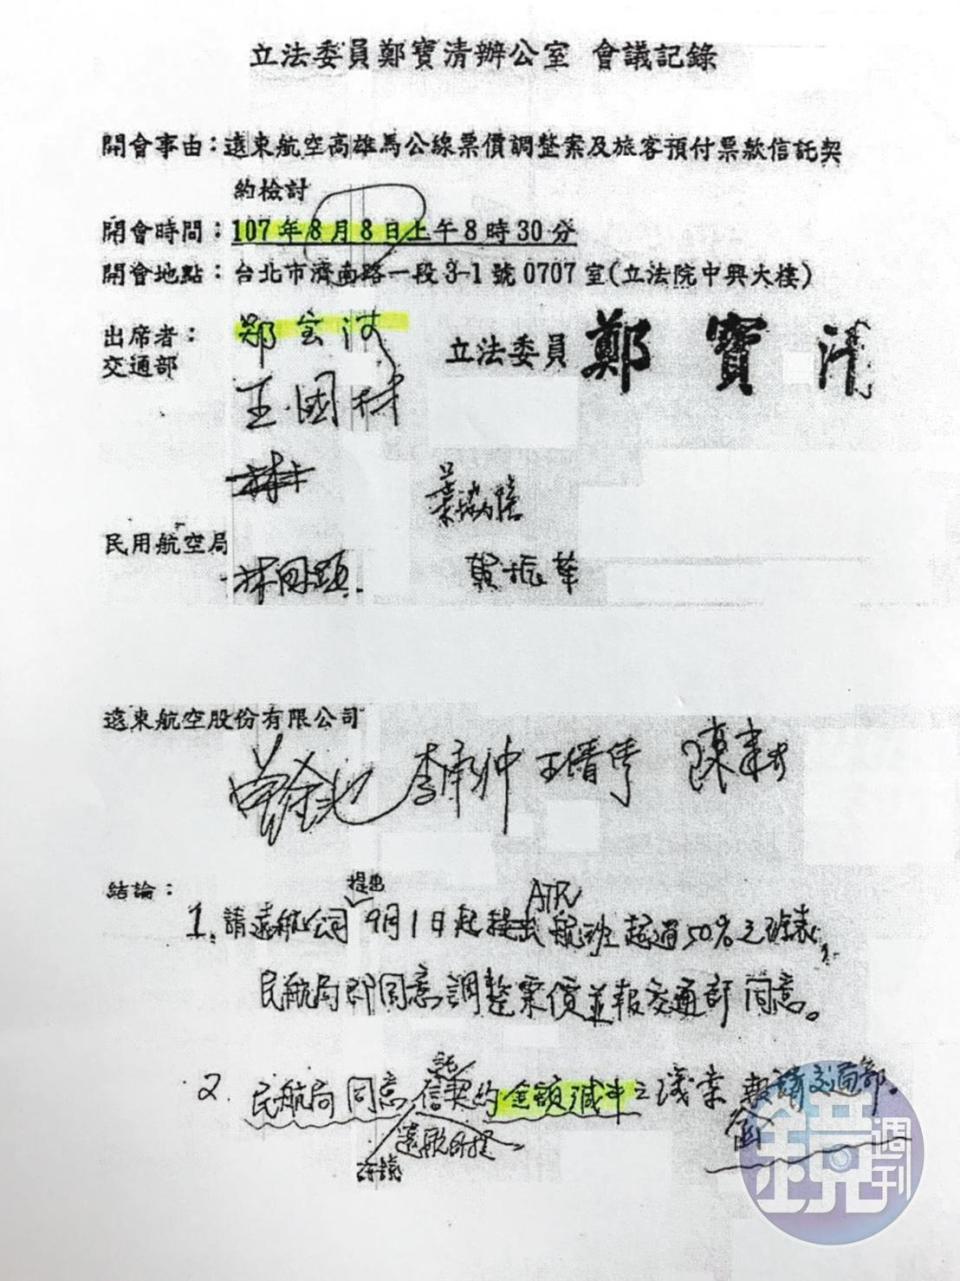 立法委員鄭寶清辦公室 會議記錄
開會事由：遠東航空高雄馬公線票價調整案及旅客預付票款信託契
約檢討
開會時間：107年8月8日上午8時30分
開會地點：台北市濟南路一段3-1號0707室(立法院中興大樓)
出席者：
鄭宝清
立法委員 鄭寶清
交通部
王國材
民用航空局
林國顯
賀振華
遠東航空股份有限公司
曾金池 李
結論：
提出
ATR
1. 請遠航公司9月1日起 航班超過50%之班表，
民航局即同意調整票價並報交通部同意。
託
2. 民航局同意信契約金額減半之議案 報請交通部。
遠航所提
鏡週刊